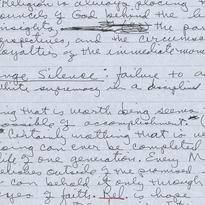 Religion is always placing
councils of God behind the
insights, the
perspectives, and the circumscr
loyalties of the immediate mom
nge Silence: failure to a
white supremacy in a disciplin
ng that is worth being seems
possible of accomplishment.
Certain, nothing that is w
oing can ever be completed
life of one generation. Every M
outside of the promised
can behold it only through
eyes of faith. he is hope